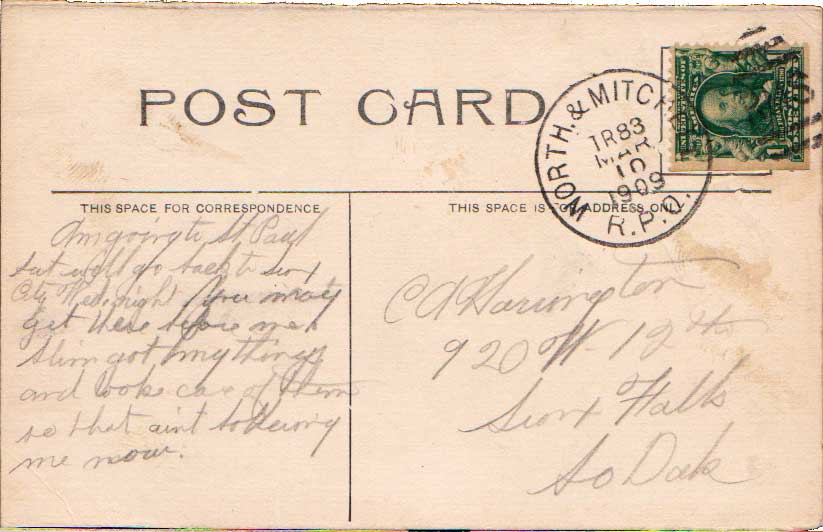 POST CARD
NORTH. & MITCHELL
TR83
MAR
10
1909
R.P.O.
THIS SPACE FOR CORRESPONDENCE
THIS SPACE IS FOR ADDRESS ONLY
Am going to St, Paul
but will go back to Sioux
City Wed. night You may
get there before me
Slim got my things
and took care of them
so that aint bothering
me now.
C A Harrington
920 W- 12th
Sioux Falls
So Dak